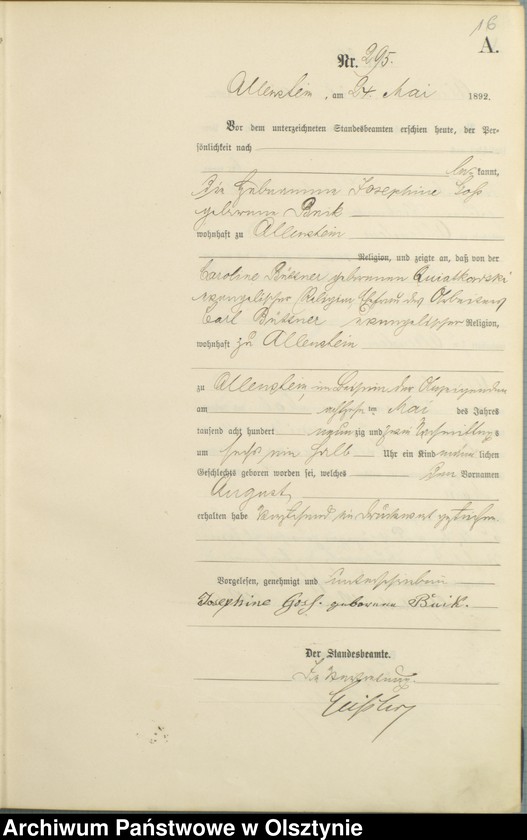 16
A.
Nr. 295.
Allenstein, am 24. Mai 1892.
Vor dem unterzeichneten Standesbeamten erschien heute, der Per-
sönlichkeit nach
be kannt,
die Hebeamme Josephine Goss
geborene
wohnhaft zu Allenstein
Religion, und zeigte an, daß von der
Caroline Büttner geborenen Kwiatkowski
evangelischer Religion, Ehefrau des Arbeiters
Carl Büttner evangelischer Religion,
wohnhaft zu Allenstein
zu Allenstein, im Beisein der Anzeigenden
am ten Mai des Jahres
tausend acht hundert neun zig und zwei Nachmittags
um sechs ein halb Uhr ein Kind männ lichen
Geschlechts geboren worden sei, welches den Vornamen
August
erhalten habe Vorstehend ein Druckwort gestrichen
Vorgelesen, genehmigt und unterschrieben
Josephine Goss. geborene
Der Standesbeamte.
In Vertretung
Archiwum Państwowe w Olsztynie